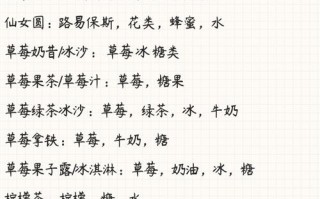 仙女圆：路易保斯，花类，蜂蜜，水
草莓奶昔/冰沙：草莓冰糖类
草莓果茶/草莓汁：草莓，糖果
草莓绿茶冰沙：草莓，绿茶，冰，牛奶
草莓拿铁：草莓，牛奶，糖
草莓果子露/冰淇淋：草莓，奶油，冰，糖
柠檬茶：柠檬，糖，水